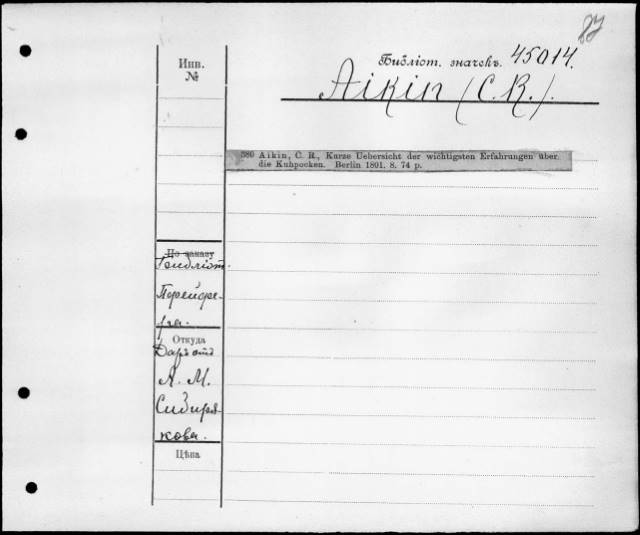 87
Библіот. значекъ. 45014.
Aikin (C. R.).
Инв.
№
380 Aikin, C. R., Kurze Uebersicht der wichtigsten Erfahrungen über
die Kuhpocken. Berlin 1801. 8. 74 p.
По заказу
Библіот.
Пфейфе-
ра.
Откуда
Даръ отъ
А. М.
Сибиря-
кова.
Цѣна